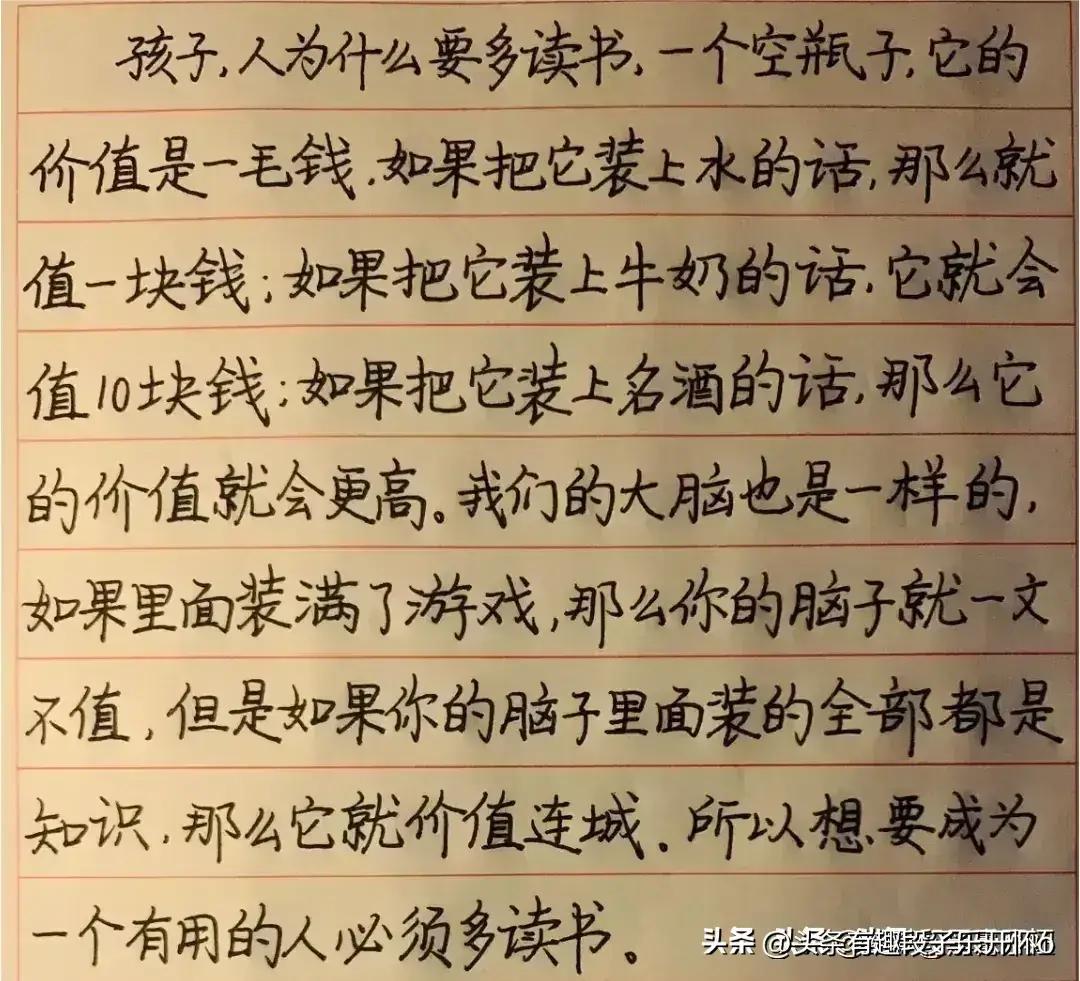 孩子,人为什么要多读书,一个空瓶子,它的
价值是一毛钱.如果把它装上水的话,那么就
值一块钱;如果把它装上牛奶的话.它就会
值10块钱;如果把它装上名酒的话,那么它
的价值就会更高。我们的大脑也是一样的,
如果里面装满了游戏,那么你的脑子就一文
不值,但是如果你的脑子里面装的全部都是
知识,那么它就价值连城.所以想要成为
一个有用的人必须多读书。
头条